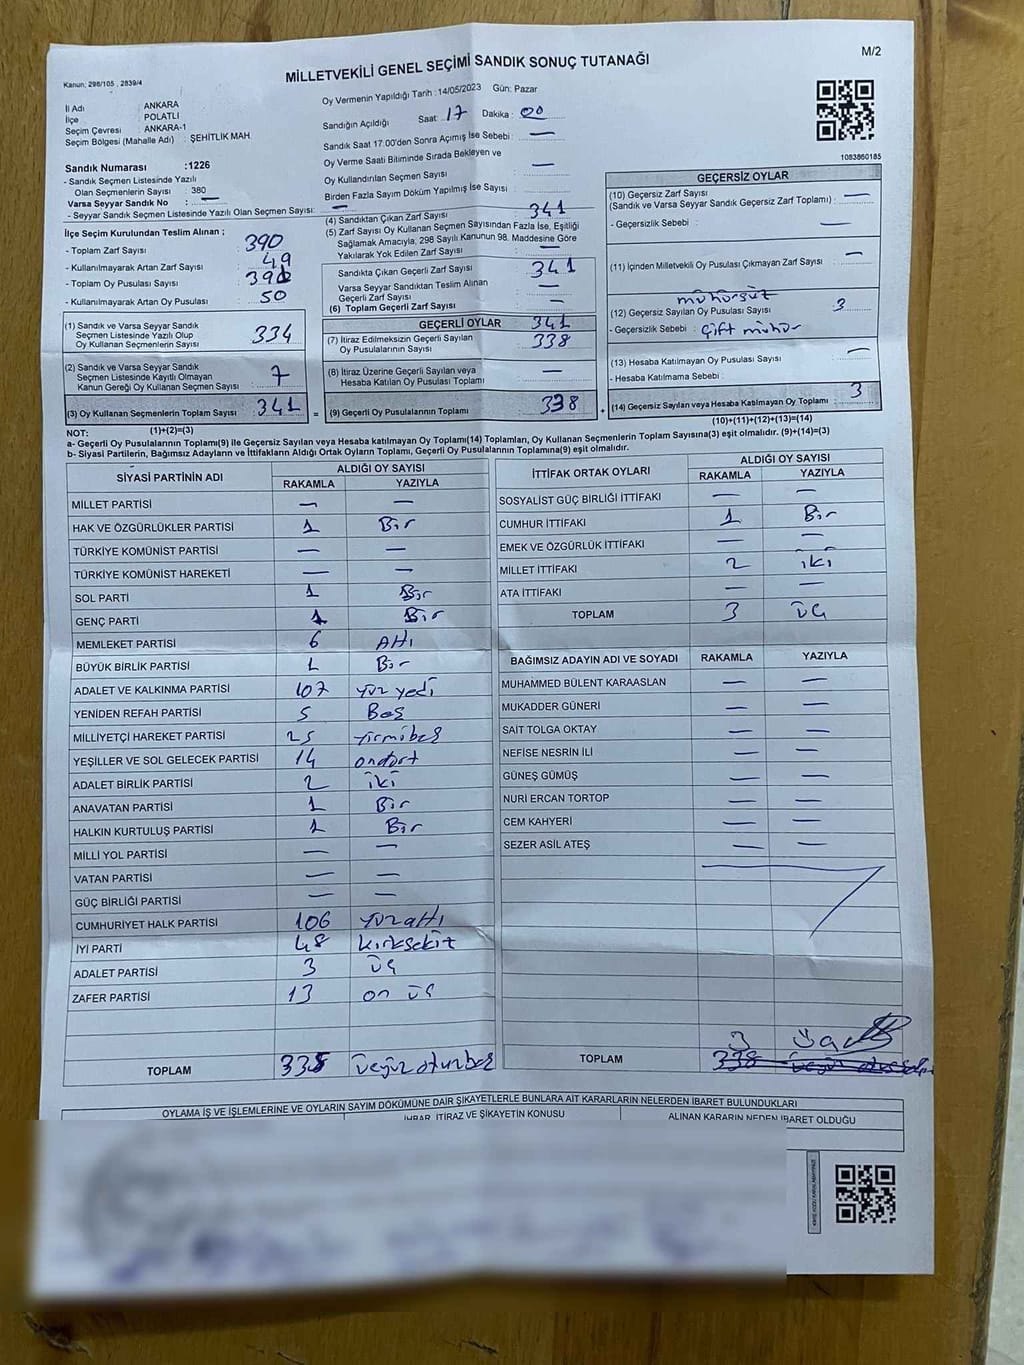 M/2
MİLLETVEKİLİ GENEL SEÇİMİ SANDIK SONUÇ TUTANAĞI
Kanun: 298/105 , 2839/4
İl Adı ANKARA
İlçe POLATLI
Seçim Çevresi ANKARA-1
Seçim Bölgesi (Mahalle Adı) : ŞEHİTLİK MAH.
Sandık Numarası :1226
- Sandık Seçmen Listesinde Yazılı
Olan Seçmenlerin Sayısı : 380
Varsa Seyyar Sandık No : —
- Seyyar Sandık Seçmen Listesinde Yazılı Olan Seçmen Sayısı: —
İlçe Seçim Kurulundan Teslim Alınan ;
- Toplam Zarf Sayısı 390
- Kullanılmayarak Artan Zarf Sayısı 49
- Toplam Oy Pusulası Sayısı
- Kullanılmayarak Artan Oy Pusulası 50
(1) Sandık ve Varsa Seyyar Sandık
Seçmen Listesinde Yazılı Olup
Oy Kullanan Seçmenlerin Sayısı 334
(2) Sandık ve Varsa Seyyar Sandık
Seçmen Listesinde Kayıtlı Olmayan
Kanun Gereği Oy Kullanan Seçmen Sayısı 7
(3) Oy Kullanan Seçmenlerin Toplam Sayısı 341
(1)+(2)=(3)
Oy Vermenin Yapıldığı Tarih : 14/05/2023 Gün: Pazar
Sandığın Açıldığı Saat : 17 Dakika : 00
Sandık Saat 17.00'den Sonra Açımış İse Sebebi : —
Oy Verme Saati Bitiminde Sırada Bekleyen ve
Oy Kullandırılan Seçmen Sayısı —
Birden Fazla Sayım Döküm Yapılmış İse Sayısı :
(4) Sandıktan Çıkan Zarf Sayısı 341
(5) Zarf Sayısı Oy Kullanan Seçmen Sayısından Fazla İse, Eşitliği
Sağlamak Amacıyla, 298 Sayılı Kanunun 98. Maddesine Göre
Yakılarak Yok Edilen Zarf Sayısı —
Sandıkta Çıkan Geçerli Zarf Sayısı 341
Varsa Seyyar Sandıktan Teslim Alınan
Geçerli Zarf Sayısı —
(6) Toplam Geçerli Zarf Sayısı —
GEÇERLİ OYLAR 341
(7) İtiraz Edilmeksizin Geçerli Sayılan
Oy Pusulalarının Sayısı 338
(8) İtiraz Üzerine Geçerli Sayılan veya
Hesaba Katılan Oy Pusulası Toplamı —
= (9) Geçerli Oy Pusulalarının Toplamı 338 +
1083860185
GEÇERSİZ OYLAR
(10) Geçersiz Zarf Sayısı
(Sandık ve Varsa Seyyar Sandık Geçersiz Zarf Toplamı) : —
- Geçersizlik Sebebi : —
(11) İçinden Milletvekili Oy Pusulası Çıkmayan Zarf Sayısı —
mühürsüz
(12) Geçersiz Sayılan Oy Pusulası Sayısı 3
- Geçersizlik Sebebi : çift mühür
(13) Hesaba Katılmayan Oy Pusulası Sayısı —
- Hesaba Katılmama Sebebi :
(14) Geçersiz Sayılan veya Hesaba Katılmayan Oy Toplamı 3
(10)+(11)+(12)+(13)=(14)
NOT:
a- Geçerli Oy Pusulalarının Toplamı(9) ile Geçersiz Sayılan veya Hesaba katılmayan Oy Toplamı(14) Toplamları, Oy Kullanan Seçmenlerin Toplam Sayısına(3) eşit olmalıdır. (9)+(14)=(3)
b- Siyasi Partilerin, Bağımsız Adayların ve İttifakların Aldığı Ortak Oyların Toplamı, Geçerli Oy Pusulalarının Toplamına(9) eşit olmalıdır.
SİYASİ PARTİNİN ADI ALDIĞI OY SAYISI
RAKAMLA YAZIYLA
MİLLET PARTİSİ — —
HAK VE ÖZGÜRLÜKLER PARTİSİ 1 Bir
TÜRKİYE KOMÜNİST PARTİSİ — —
TÜRKİYE KOMÜNİST HAREKETİ — —
SOL PARTİ 1 Bir
GENÇ PARTİ 1 Bir
MEMLEKET PARTİSİ 6 Altı
BÜYÜK BİRLİK PARTİSİ 1 Bir
ADALET VE KALKINMA PARTİSİ 107 yüz yedi
YENİDEN REFAH PARTİSİ 5 Beş
MİLLİYETÇİ HAREKET PARTİSİ 25 yirmibeş
YEŞİLLER VE SOL GELECEK PARTİSİ 14 ondört
ADALET BİRLİK PARTİSİ 2 iki
ANAVATAN PARTİSİ 1 Bir
HALKIN KURTULUŞ PARTİSİ 1 Bir
MİLLİ YOL PARTİSİ — —
VATAN PARTİSİ — —
GÜÇ BİRLİĞİ PARTİSİ — —
CUMHURİYET HALK PARTİSİ 106 yüzaltı
İYİ PARTİ 48 kırksekiz
ADALET PARTİSİ 3 üç
ZAFER PARTİSİ 13 on üç
TOPLAM 335 üçyüz otuzbeş
İTTİFAK ORTAK OYLARI ALDIĞI OY SAYISI
RAKAMLA YAZIYLA
SOSYALİST GÜÇ BİRLİĞİ İTTİFAKI — —
CUMHUR İTTİFAKI 1 Bir
EMEK VE ÖZGÜRLÜK İTTİFAKI — —
MİLLET İTTİFAKI 2 iki
ATA İTTİFAKI — —
TOPLAM 3 üç
BAĞIMSIZ ADAYIN ADI VE SOYADI RAKAMLA YAZIYLA
MUHAMMED BÜLENT KARAASLAN — —
MUKADDER GÜNERİ — —
SAİT TOLGA OKTAY — —
NEFİSE NESRİN İLİ — —
GÜNEŞ GÜMÜŞ — —
NURİ ERCAN TORTOP — —
CEM KAHYERİ — —
SEZER ASİL ATEŞ — —
3 üç
TOPLAM 338
OYLAMA İŞ VE İŞLEMLERİNE VE OYLARIN SAYIM DÖKÜMÜNE DAİR ŞİKAYETLERLE BUNLARA AİT KARARLARIN NELERDEN İBARET BULUNDUKLARI
İHBAR, İTİRAZ VE ŞİKAYETİN KONUSU ALINAN KARARIN NEDEN İBARET OLDUĞU